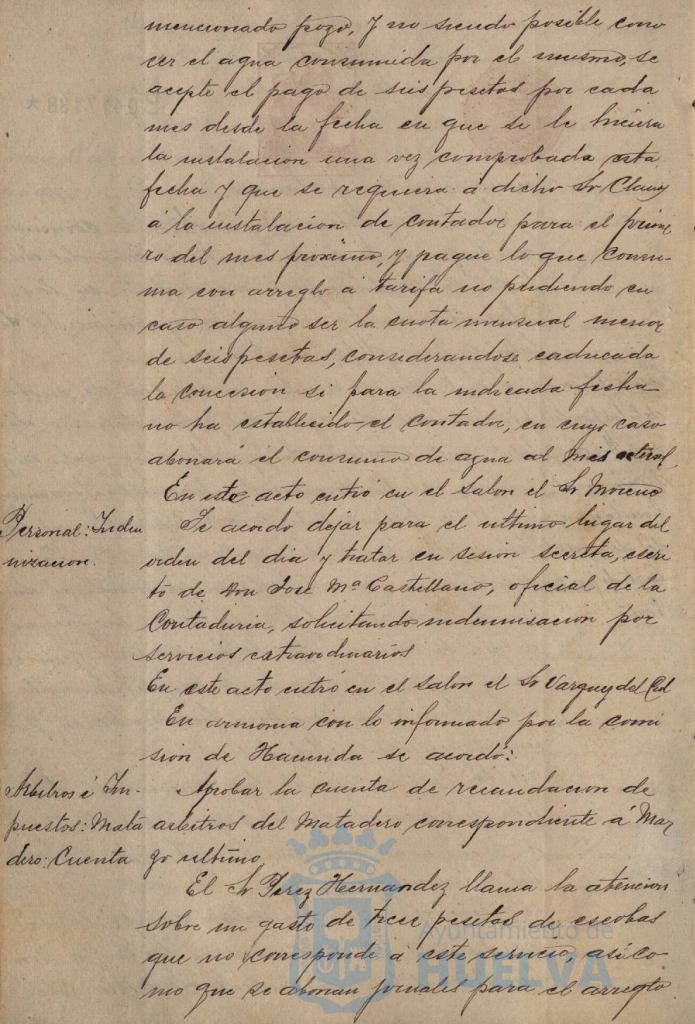 mencionado pozo, y no siendo posible cono
cer el agua consumida por el mismo, se
acepte el pago de seis pesetas por cada
mes desde la fecha en que se le hiciera
la instalacion una vez comprobada esta
fecha y que se requiera á dicho Sr Clauss
á la instalacion de contador para el prime
ro del mes proximo, y pague lo que consu-
ma con arreglo á tarifa no pudiendo en
caso alguno ser la cuota mensual menor
de seis pesetas, considerandose caducada
la concesion si para la indicada fecha
no ha establecido el contador, en cuyo caso
abonará el consumo de agua al mes actual
En este acto entró en el salon el Sr Moreno
Personal: Indem
nizacion.
Se acordo dejar para el ultimo lugar del
orden del dia y tratar en sesión secreta, escri
to de Don José Mª Castellano, oficial de la
Contaduria, solicitando indemnisacion por
servicios extraordinarios
En este acto entró en el salon el Sr Vargas del Cid
En armonia con lo informado por la comi
sion de Hacienda se acordó:
Arbitros é Im-
puestos: Mata
dero: Cuenta
Aprobar la cuenta de recaudacion de
arbitros del Matadero correspondiente á Mar
zo ultimo
El Sr Perez Hernandez llama la atencion
sobre un gasto de trece pesetas de escobas
que no corresponde á este servicio, asi co-
mo que se abonan jornales para el arreglo
Ayuntamiento de
HUELVA